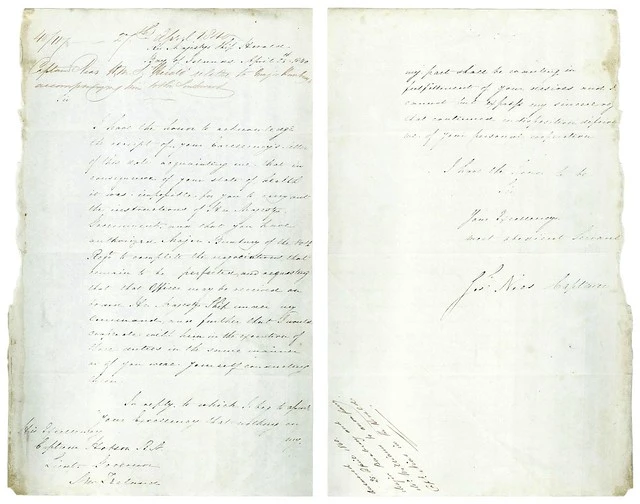 40/117
7th April 1840
Her Majesty's Ship Herald
Bay of Islands April
Captain Nias H.M.S. Herald relative to Major Bunbury
accompanying him to the Southward
Sir
I have the honor to acknowledge
the receipt of your Excellency's letter
of this date acquainting me that in
consequence of your state of health
it was impossible for you to carry out
the instructions of Her Majesty's
Government, and that you have
authorized Major Bunbury of the 80th
Regt to complete the negociations that
remain to be perfected and requesting
that that Officer may be received on
board Her Majesty's Ship under my
command, and further that I would
cooperate with him in the execution of
these duties in the same manner
as if you were yourself conducting
them.
In reply to which I beg to assure
Your Excellency that nothing on
my
His Excellency
Captain Hobson R.N.
Lieut Governor
New Zealand
my part shall be wanting in
fulfillment of your desires and I
cannot but express my sincere regret
that continued indisposition deprives
me of your personal cooperation
I have the honor to be
Sir
Your Excellency's
most obedient Servant
Jos. Nias Captain